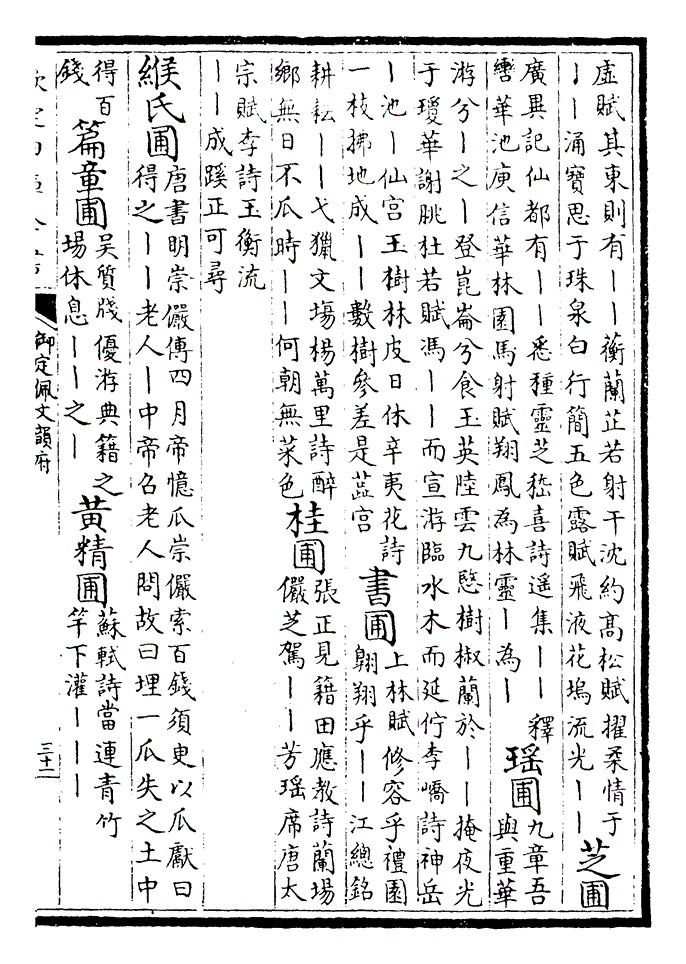 虛賦其東則有丨丨蘅蘭芷若射干沈約高松賦擢柔情于
丨丨涌寶思于珠泉白行簡五色露賦飛液花塢流光丨丨
芝圃
廣異記仙都有丨丨悉種靈芝嵇喜詩遥集丨丨釋
轡華池庾信華林園馬射賦翔鳳為林靈丨為丨
瑶圃
九章吾
與重華
游兮丨之丨登崑崙兮食玉英陸雲九愍樹椒蘭於丨丨掩夜光
于瓊華謝朓杜若賦馮丨丨而宣游臨水木而延佇李嶠詩神岳
丨池丨仙宫玉樹林皮日休辛夷花詩
一枝拂地成丨丨數樹參差是蕋宫
書圃
上林賦修容乎禮園
翺翔乎丨丨江總銘
耕耘丨丨弋獵文塲楊萬里詩醉
鄉無日不瓜時丨丨何朝無菜色
桂圃
張正見籍田應教詩蘭塲
儼芝駕丨丨芳瑶席唐太
宗賦李詩玉衡流
丨丨成蹊正可尋
緱氏圃
唐書明崇儼傳四月帝憶瓜崇儼索百錢須臾以瓜獻曰
得之丨丨老人丨中帝召老人問故曰埋一瓜失之土中
得百
錢
篇章圃
吴質牋優游典籍之
塲休息丨丨之丨
黄精圃
蘇軾詩當連青竹
竿下灌丨丨丨
欽定四庫全書
御定佩文韻府
三十二